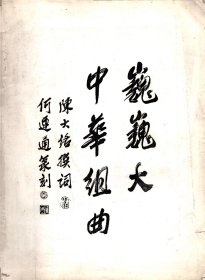 巍巍大
中華組曲
陳大焰撰詞
何運通篆刻